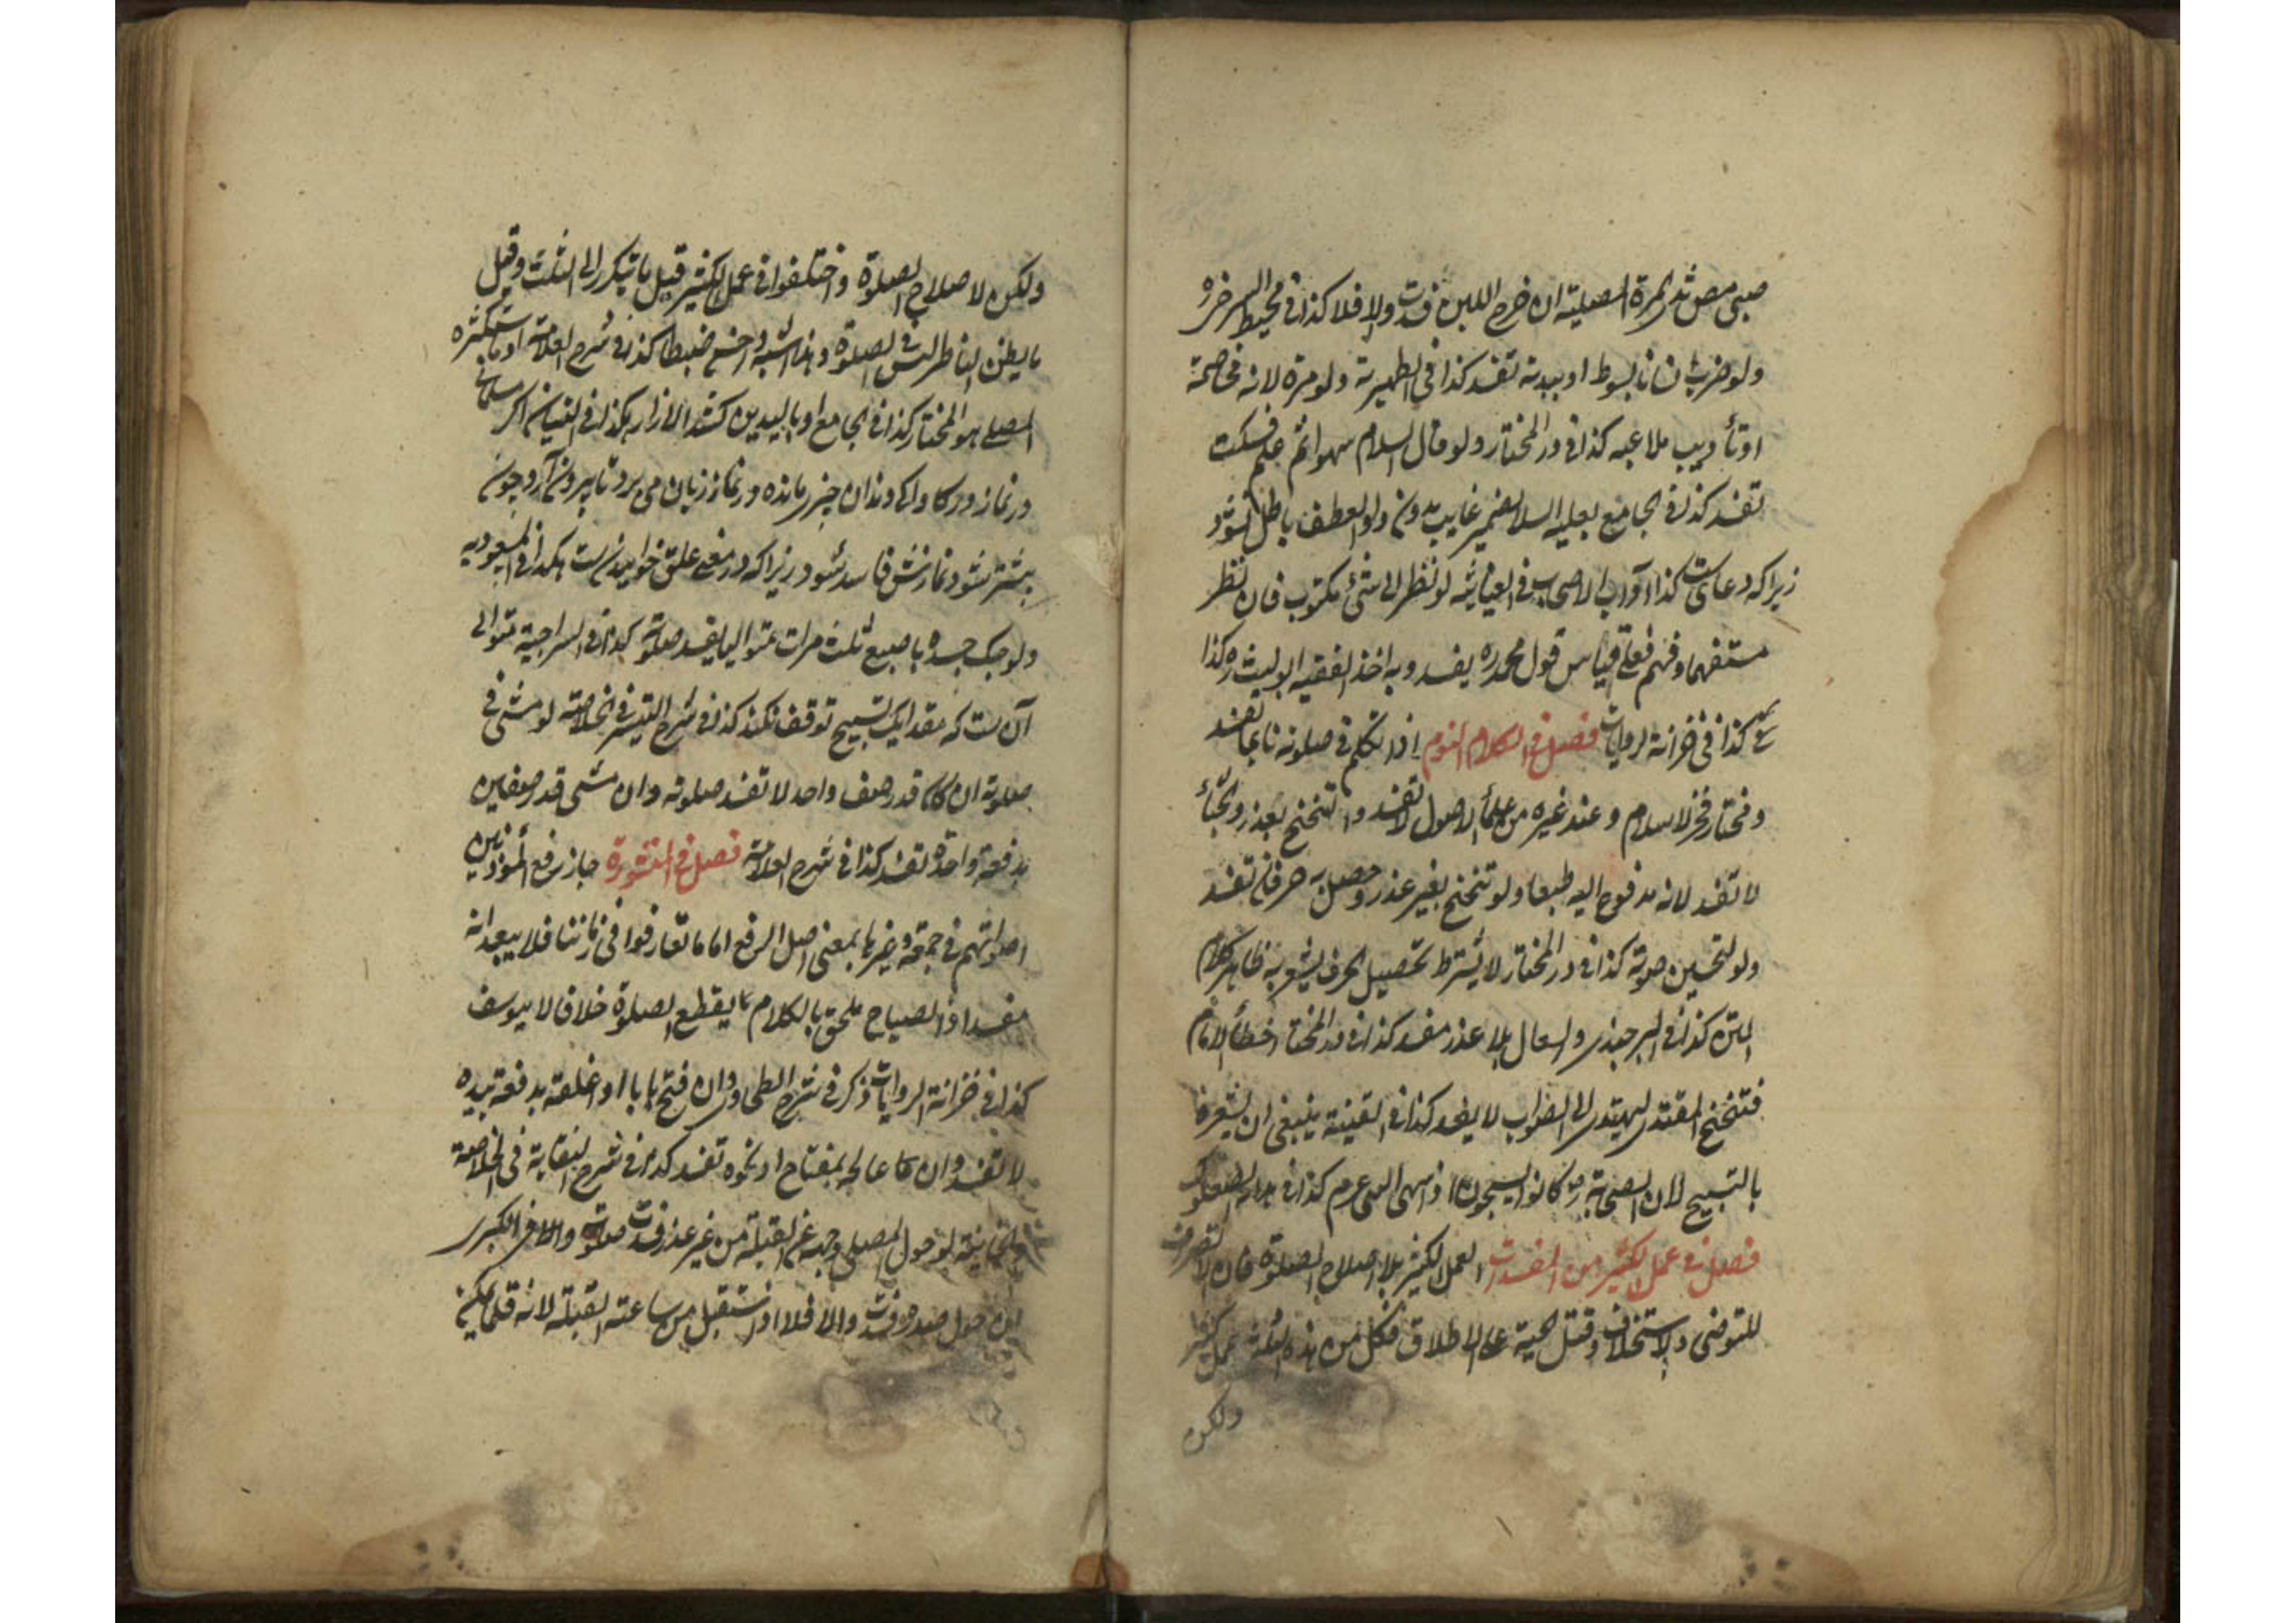 صبی مص ثدی المرة المصلیة ان خرج اللبن فسدت والا فلا کذا فی محیط السرخسی
ولو ضرب انسانا بسوط او بیده تفسد کذا فی الظهیریة ولو مرة لانه مخاصمة
او تأدیب او ملاعبه کذا فی در المختار ولو قال السلام سهوا ثم علم فسکت
تفسد کذا فی الجامع بعلیه السلام بضمیر غایب بدون واو العطف باطل نشود
زیراکه دعاست کذا آداب الاصحاب فی الغیاثیه لو نظر الی شئ مکتوب فان نظر
مستفهما وفهم فعلی قیاس قول محمد ره یفسد وبه اخذ الفقیه ابو لیث ره کذا
کذا فی خزانة الروایات فصل فی الکلام النوم اذا تکلم فی صلوته نائما تفسد
ومختار فخر الاسلام وعند غیره من علمأ الاصول لا تفسد والتنحنح بعذر وتجشأ
لا تفسد لانه مدفوع الیه طبعا ولو تنحنح بغیر عذر وحصل به حرفان تفسد
ولو لتحسین صوته کذا فی در المختار لا یشترط تحصیل الحرف یشعر به ظاهر کلام
المتن کذا فی البرجندی والسعال بلا عذر مفسد کذا فی در المختار اخطأ الامام
فتنحنح المقتدی لیهتدی الی الصواب لا یفسد کذا فی القنیة ینبغی ان یشعره
بالتسبیح لان الصحابة رض کانوا یسبحون اذا سهی النبی عرم کذا فی
فصل فی عمل الکثیر من المفسدات العمل الکثیر بلا اصلاح الصلوة فان الانصراف
للتوضی والاستخلاف وقتل الحیة علی الاطلاق فکل من هذه الثلثة عمل کثیر
ولکن
ولکن لاصلاح الصلوة واختلفوا فی عمل الکثیر قیل ما یتکرر الی الثلث وقیل
ما یظن الناظر لیس فی الصلوة وهذا اشبه واحسن ضبطا کذا فی شرح العلامة او ما یستکثره
المصلی هو المختار کذا فی الجامع او بالیدین کشد الازار هکذا فی الغیاث اگر مسلمانی
در نماز در کاواکی دندان چیزی مانده در نماز زبان می برد تا بیرون آرد چون
بیشتر شود نمازش فاسد شود زیراکه در معنی علق خوابیدن است هکذا فی المسعودیه
ولو حک جسده باصبع ثلث مرات متوالیا یفسد صلوته کذا فی السراجیة متوالی
آن ست که مقدار یک تسبیح توقف نکند کذا فی شرح التیسیر فی الخلاصه لو مشی فی
صلوته ان کان قدر صف واحد لا تفسد صلوته وان مشی قدر صفین
بدفعة واحدة تفسد کذا فی شرح العلامة فصل فی جاز رفع المؤذنین
اصواتهم فی جمعة وغیرها بمعنی اصل الرفع اما ما تعارفوا فی زماننا فلا یبعد انه
مفسد اذ الصیاح ملحق بالکلام مما یقطع الصلوة خلافا لابی یوسف
کذا فی خزانة الروایات وذکر فی شرح الطحاوی وان فتح بابا او اغلقه بدفعة بیده
لا تفسد وان کان عالجه بمفتاح او نحوه تفسد کذا فی شرح النقایة فی الخلاصة
والخانیة لو حول المصلی وجهه عن القبلة من غیر عذر فسدت صلوته والا فی الکبری
لو حول صدره فسدت والا فلا اذا استقبل من ساعته القبلة لانه قلما یمکن